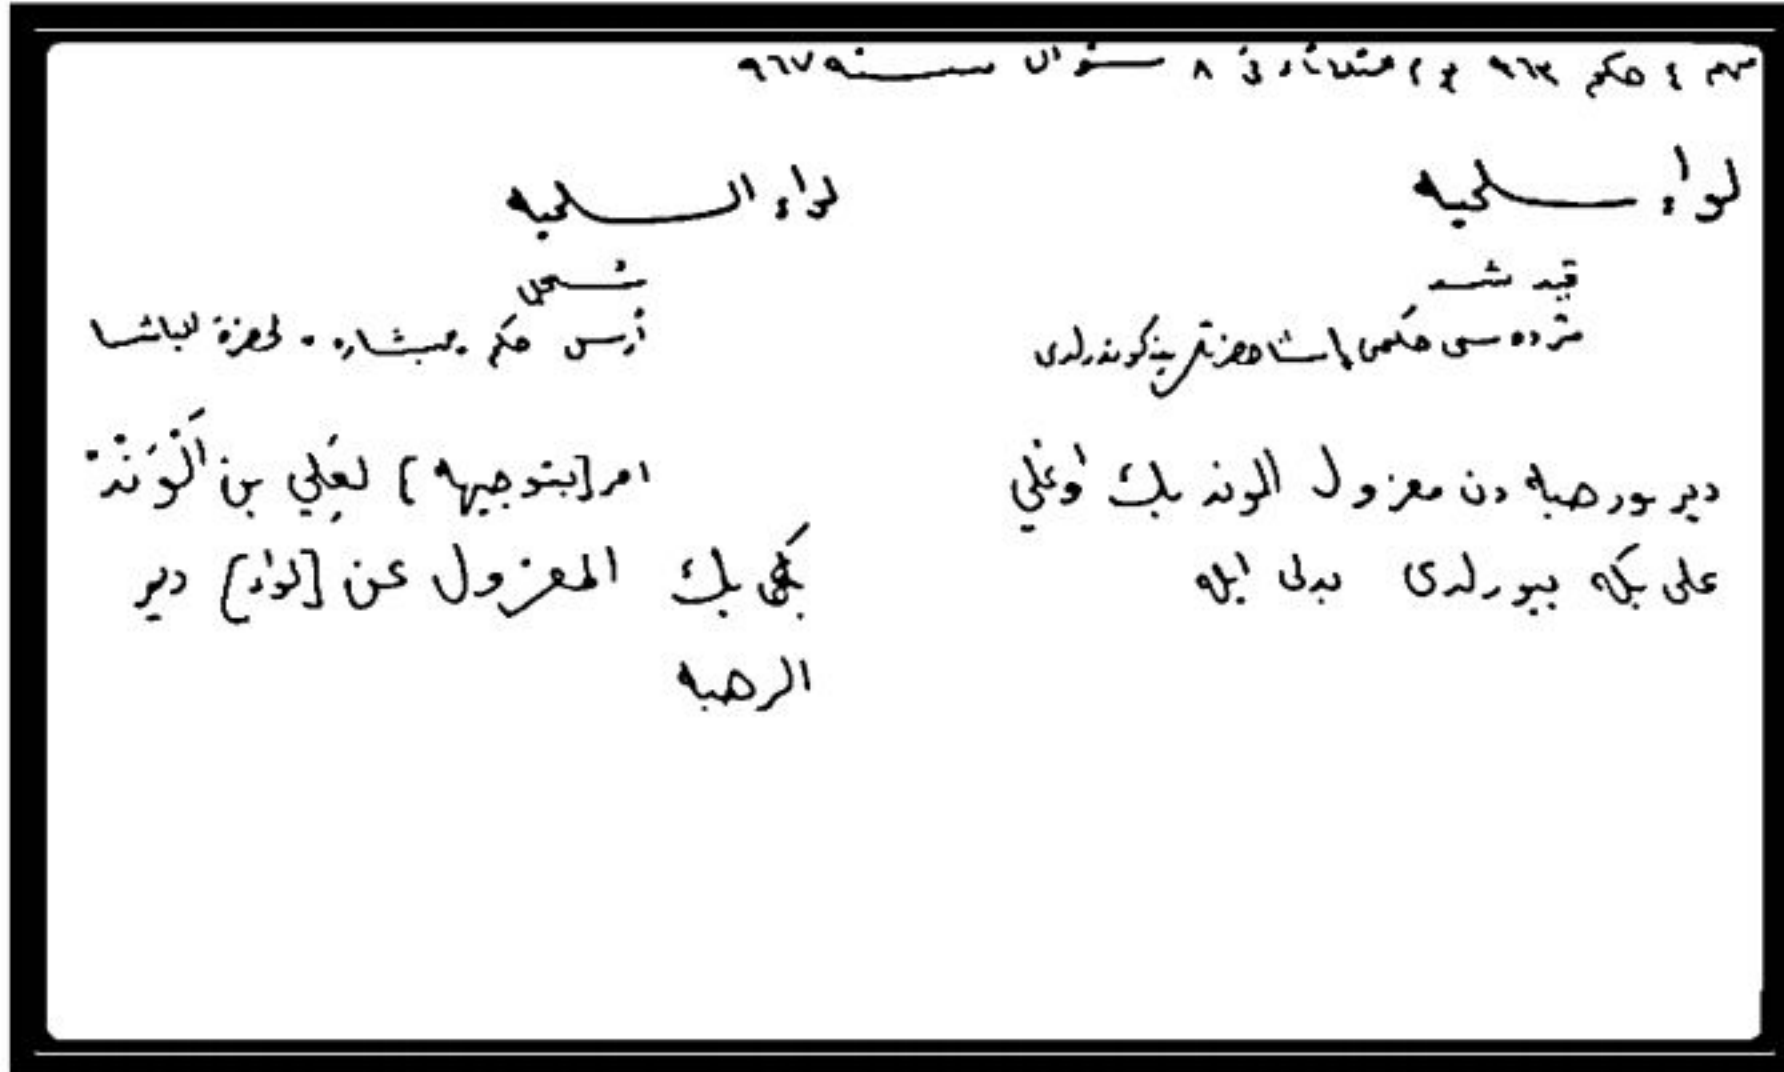 مهم ٤ حكم ٩٦٣ يوم في ٨ شوال سنه ٩٦٧
لواء سلميه
قيد شد
مژده سى حكمى پاشا حضرتلرينه كوندرلدى
دير ورحبه دن معزول الوند بك اوغلي
على بكه بيورلدى بدلى ايله
لواء السلميه
سُجل
أرسل حكم بشاره لحضرة الباشا
امر [بتوجيهه] لعَلِي بن اَلْوَنْدْ
بك المعزول عن [لواء] دير
الرحبه